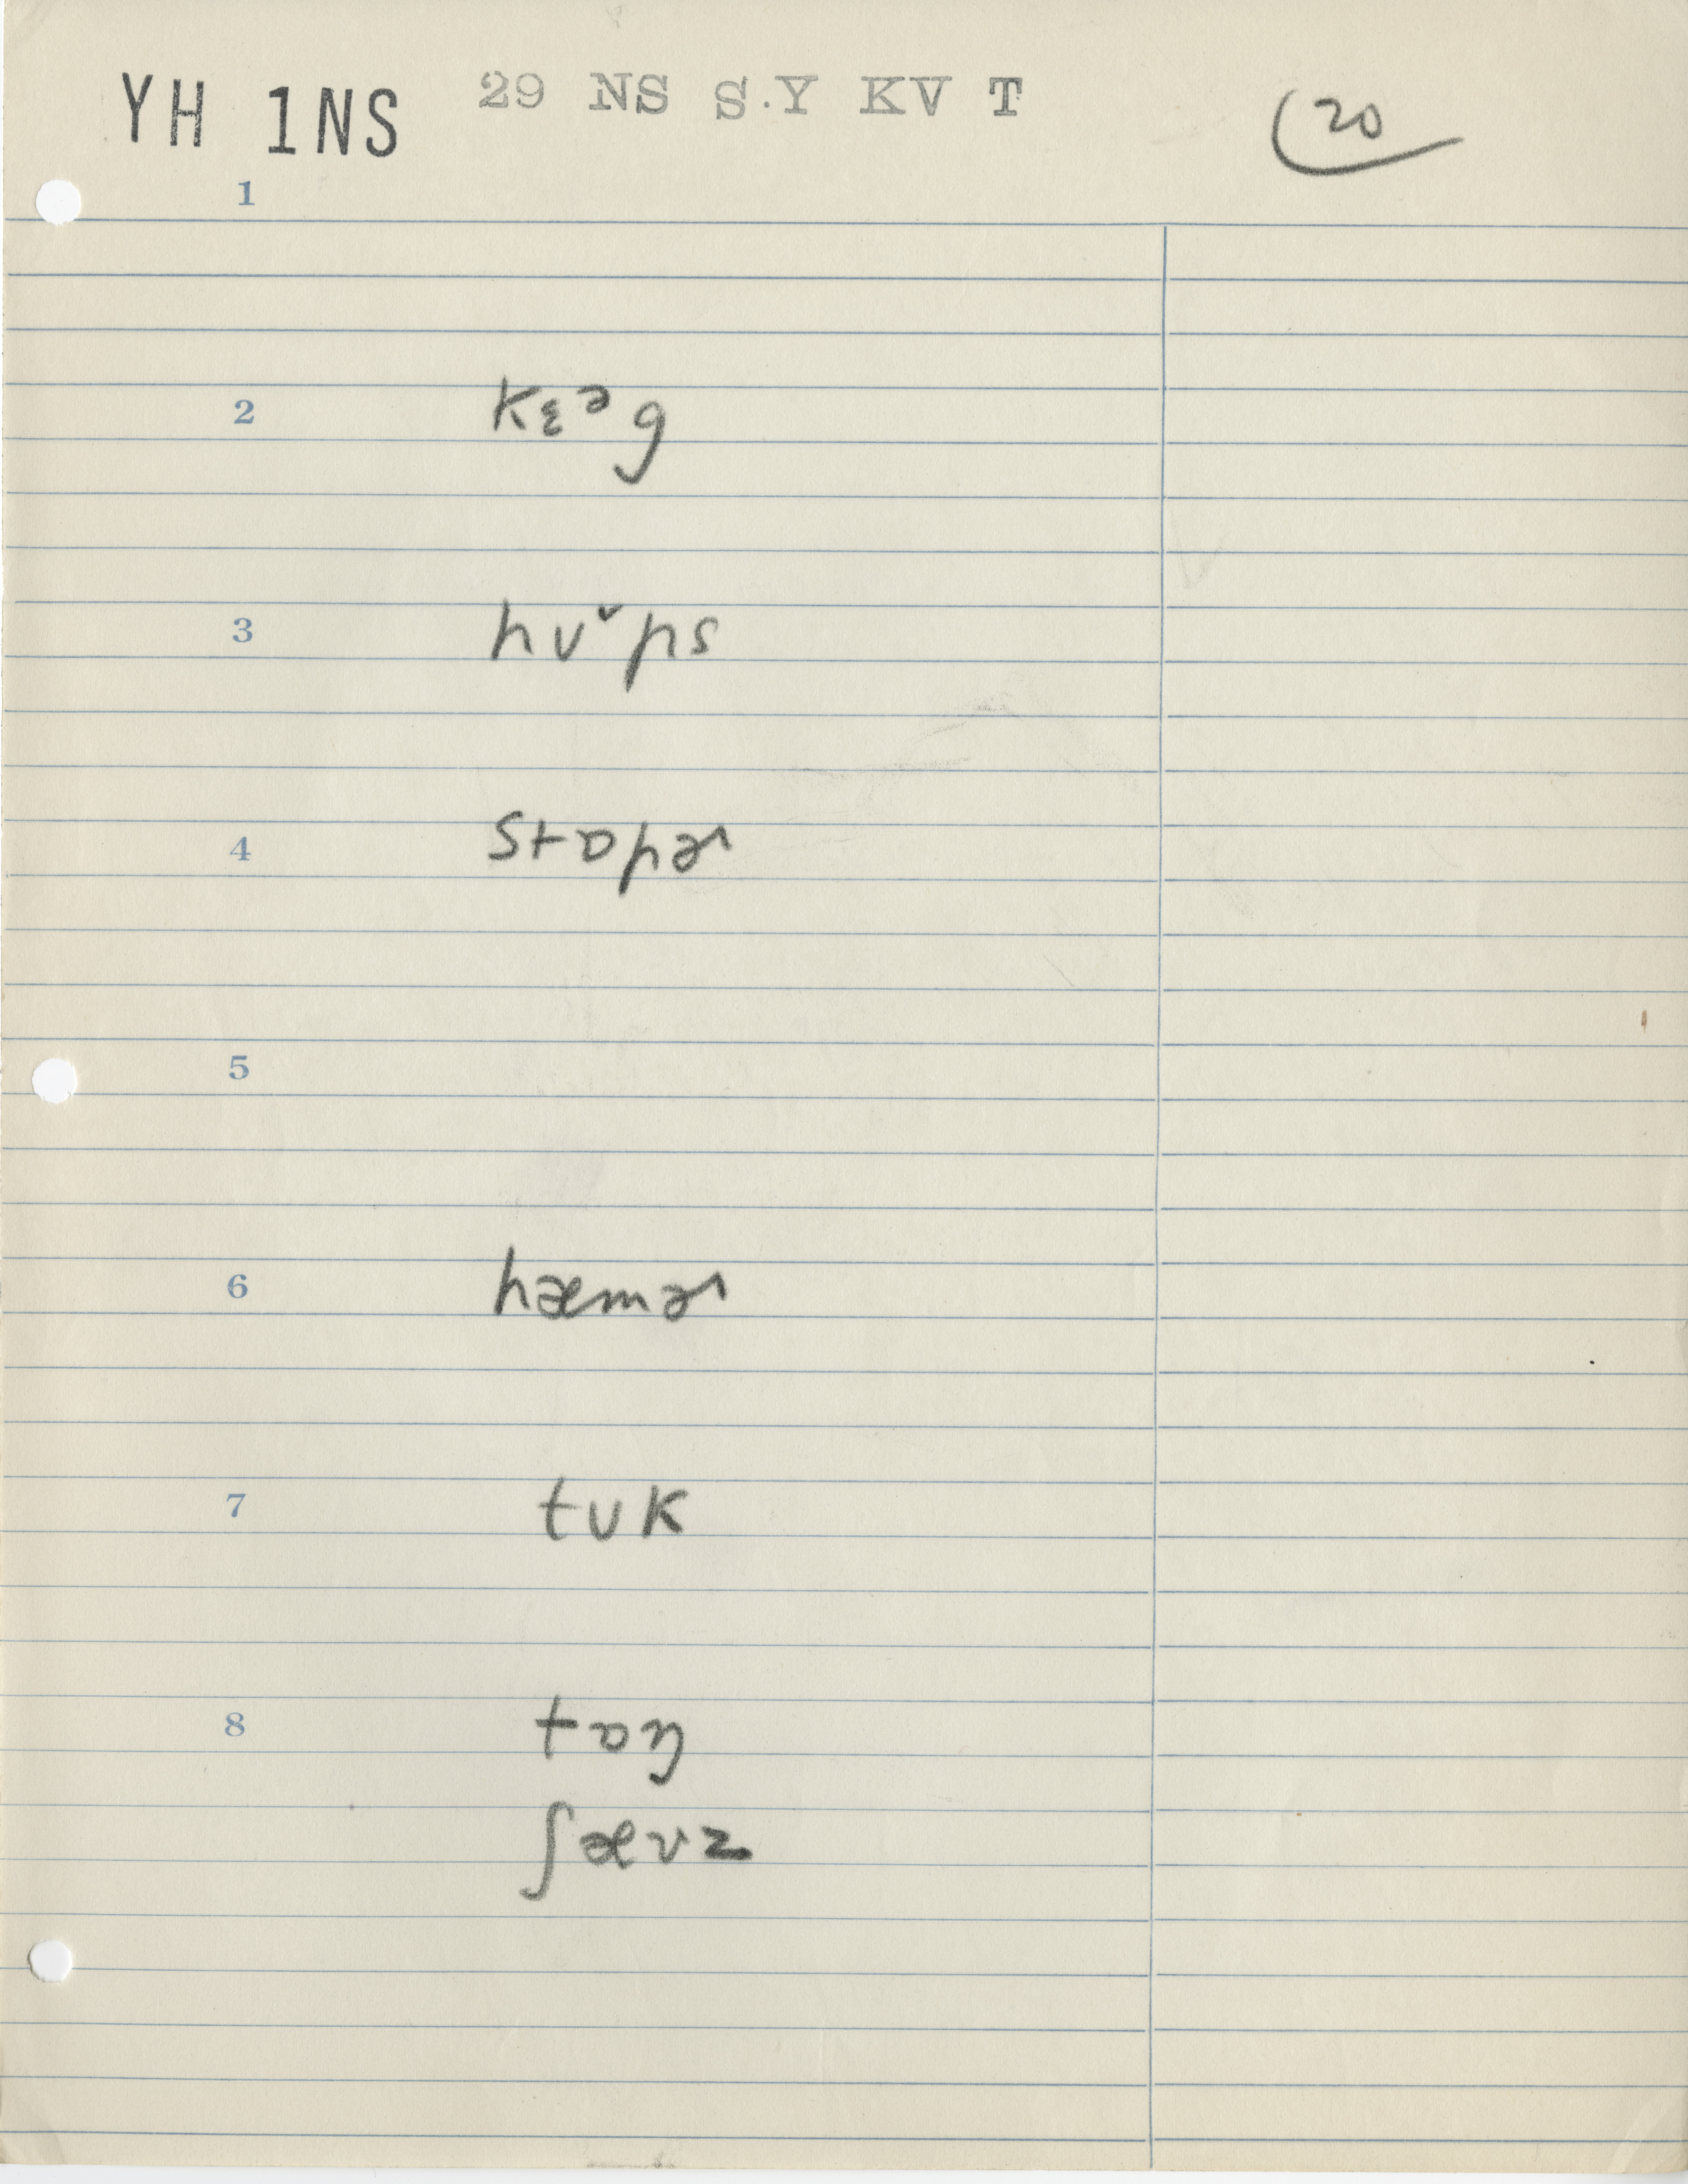 YH 1NS 29 NS S.Y KV T 20
1
2 kɛᵊg
3 hʊˇps
4 stɒpɚ
5
6 hæmɚ
7 tʊk
8 tɒŋ
ʃævz